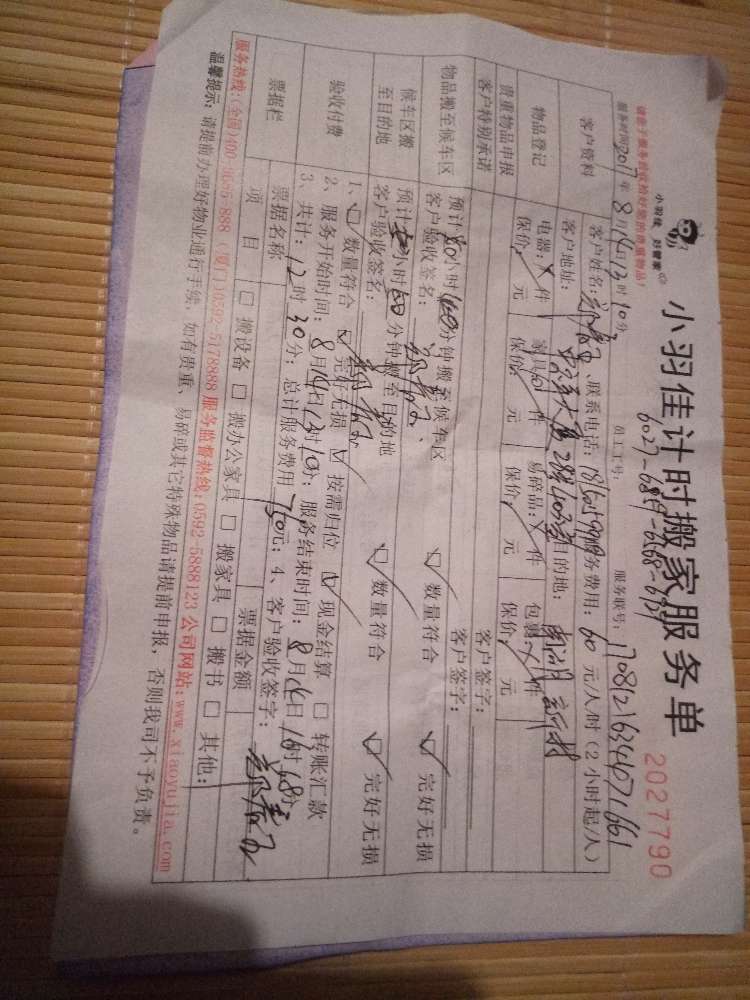 请亲手服务前后检好您的贵重物品!
小羽佳 好管家
小羽佳计时搬家服务单
2027790
6027-6817-6268-6959
服务时间2017年8月14日13时10分 员工工号: 服务联号:17081216344071661
客户资料
客户姓名: 、联系电话: 服务费用:60元/人/时(2小时起/人)
客户地址: 288号403室目的地:
物品登记
电器: 件 家具 件 易碎品: 件 包裹 件
保价, 元 保价, 元 保价, 元 保价, 元
贵重物品申报
客户签字:
客户特别承诺
客户签字:
物品搬至候车区
预计 小时 分钟搬至候车区、
客户验收签名: □数量符合 □完好无损
候车区搬
至目的地
预计 小时 分钟搬至目的地
客户验收签名: □数量符合 □完好无损
验收付费
1、□数量符合 □完好无损 □按需归位 □现金结算 □转账汇款
2、服务开始时间:8月14日13时10分;服务结束时间:8月14日16时48分
3、共计:12时30分;总计服务费用750元;4、客户验收签字:
票据栏
票据名称 票据金额
项目 □搬设备 □搬办公家具 □搬家具 □搬书 □其他:
服务热线:(全国)400-3685-888 (厦门)0592-5178888 服务监督热线:0592-5888123 公司网站:www.xiaoyujia.com
温馨提示:请提前办理好物业通行手续,如有贵重、易碎或其它特殊物品请提前申报,否则我司不予负责。